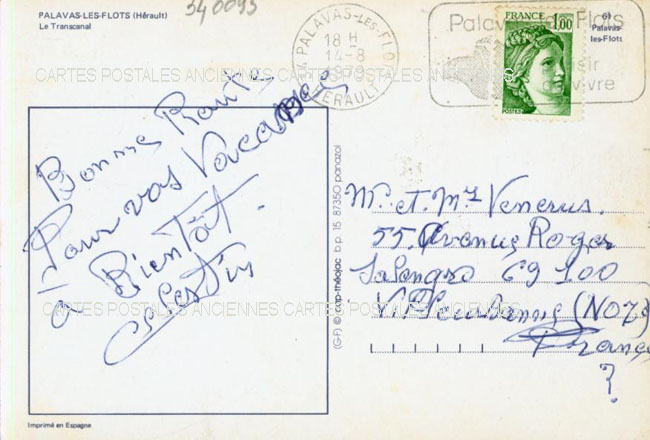 PALAVAS-LES-FLOTS (Hérault)
Le Transcanal
340093
PALAVAS-LES-FLOTS
18 H
14-8
1979
HERAULT
Palavas Flots
FRANCE
1,00
POSTES
61
Palavas-
les-Flots
CARTES POSTALES ANCIENNES CARTES POSTALES ANCIENNES
Bonne Route
Pour vos Vacances
a Bientôt.
Celestin
(G-F) © cap-théojac b.p. 15 87350 panazol
Mr et Mme Venerus.
55 Avenue Roger
Salengro 69 100
Villeurbanne
France
?
CARTES POSTALES ANCIENNES CARTES POSTALES ANCIENNES
Imprimé en Espagne